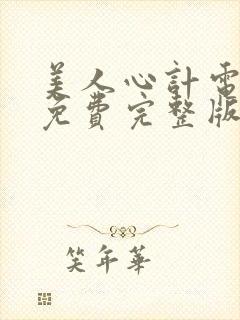 美人心計電
免費完整版
笑年華